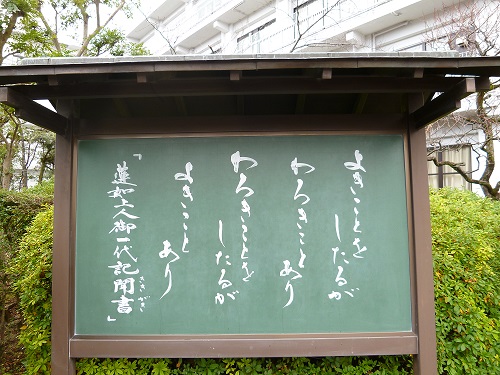 よきことを
したるが
わろきことあり
わろきことを
したるが
よきこと
あり
『蓮如上人御一代記聞書』
きき がき